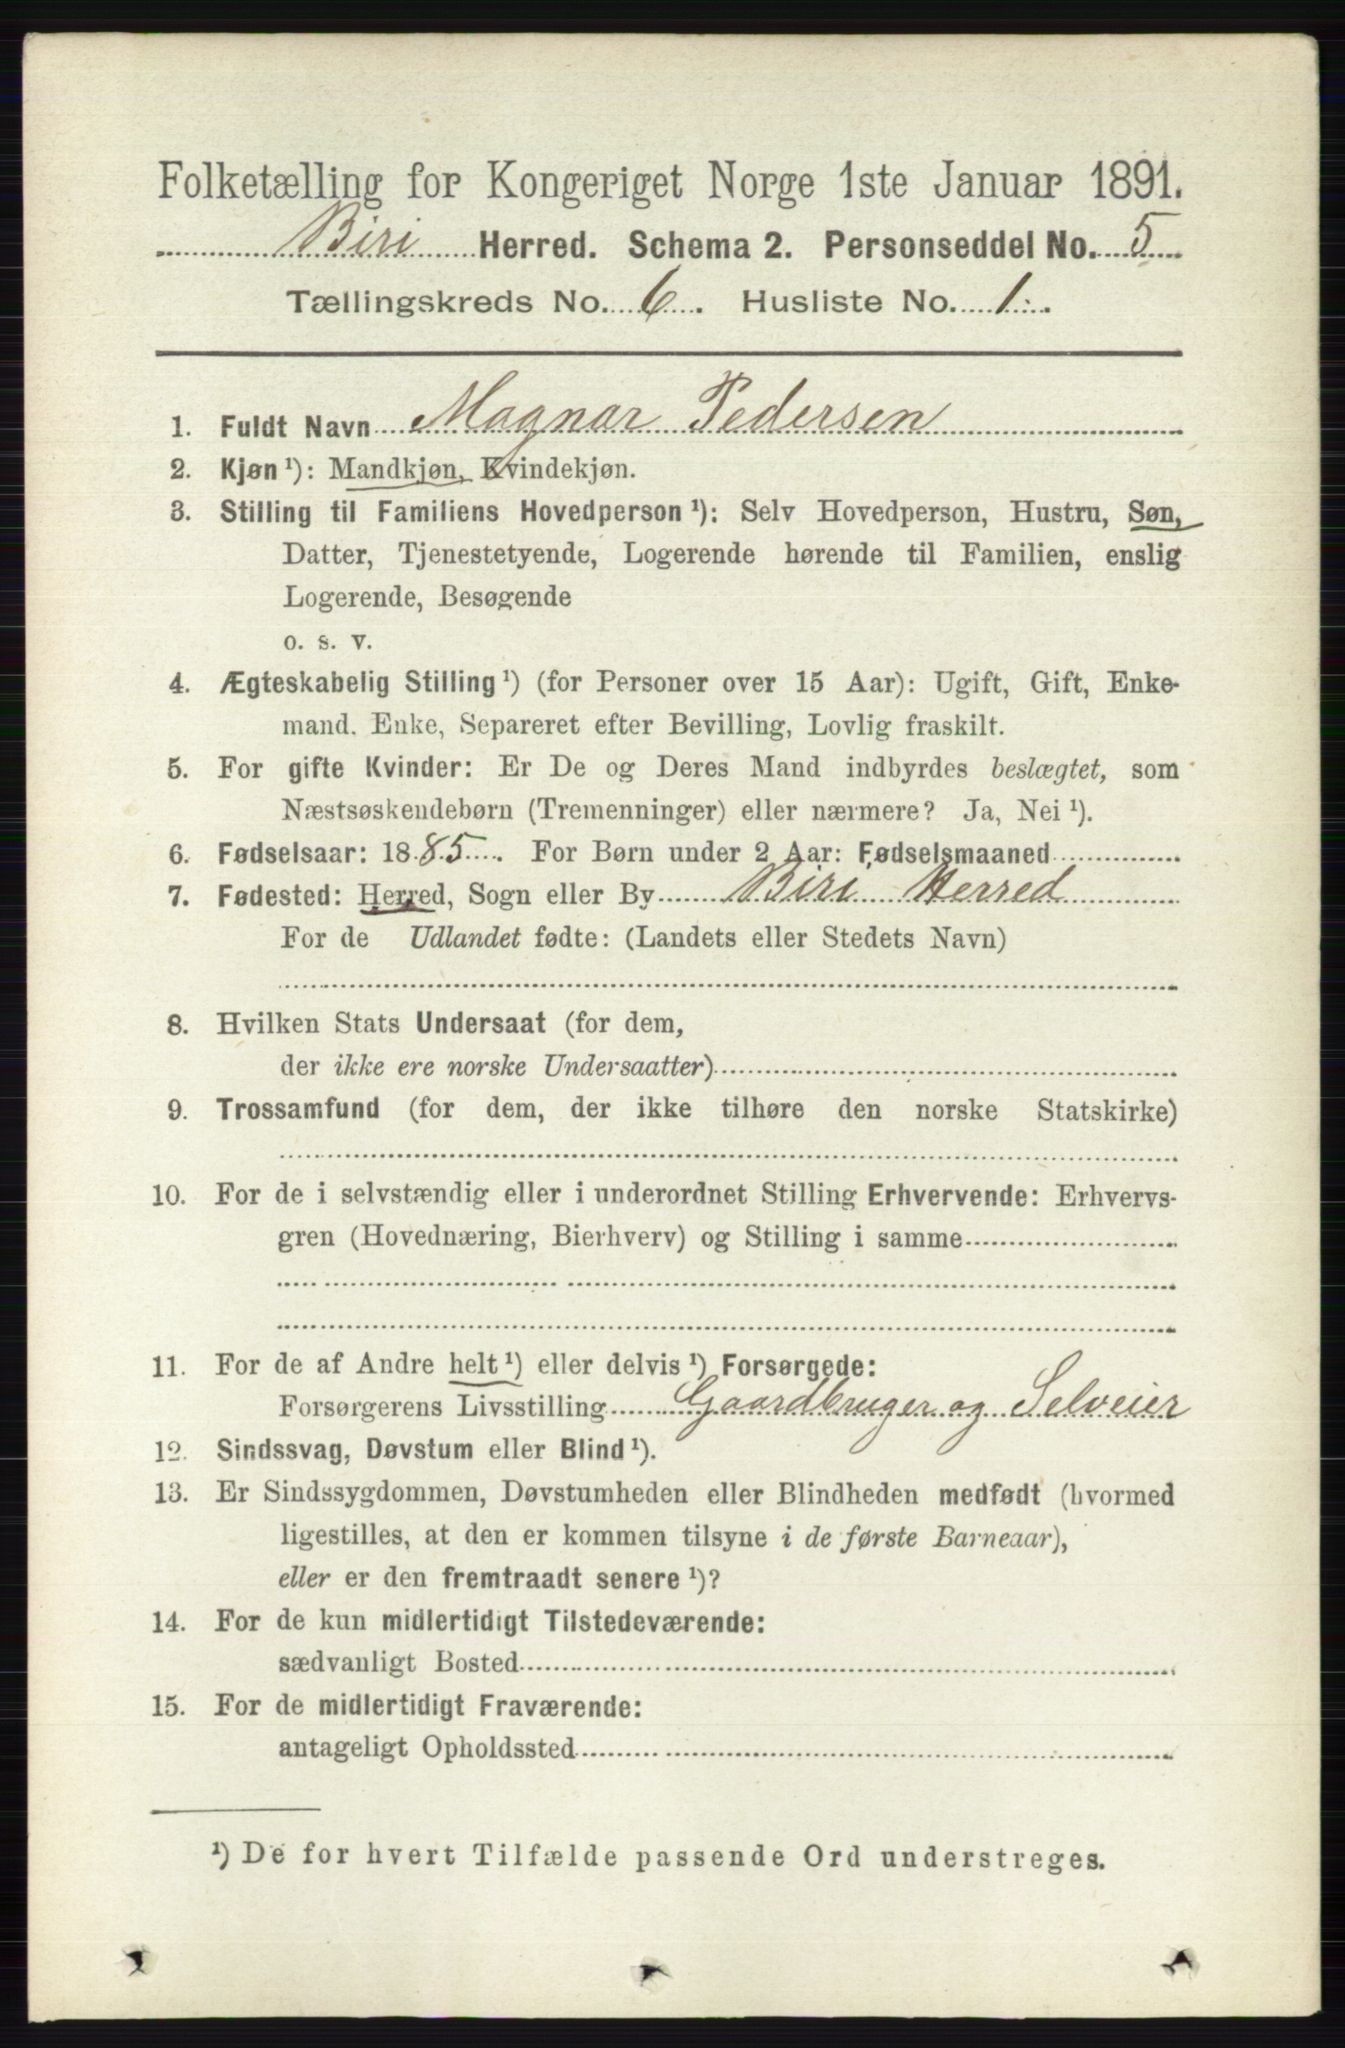 Folketælling for Kongeriget Norge 1ste Januar 1891.
Biri Herred. Schema 2. Personseddel No. 5
Tællingskreds No. 6. Husliste No. 1.
1. Fuldt Navn Magnar Pedersen
2. Kjøn ¹): Mandkjøn, Kvindekjøn.
3. Stilling til Familiens Hovedperson ¹): Selv Hovedperson, Hustru, Søn,
Datter, Tjenestetyende, Logerende hørende til Familien, enslig
Logerende, Besøgende
o. s. v.
4. Ægteskabelig Stilling ¹) (for Personer over 15 Aar): Ugift, Gift, Enke-
mand. Enke, Separeret efter Bevilling, Lovlig fraskilt.
5. For gifte Kvinder: Er De og Deres Mand indbyrdes beslægtet, som
Næstsøskendebørn (Tremenninger) eller nærmere? Ja, Nei ¹).
6. Fødselsaar: 1885. For Børn under 2 Aar: Fødselsmaaned
7. Fødested: Herred, Sogn eller By Biri Herred
For de Udlandet fødte: (Landets eller Stedets Navn)
8. Hvilken Stats Undersaat (for dem,
der ikke ere norske Undersaatter)
9. Trossamfund (for dem, der ikke tilhøre den norske Statskirke)
10. For de i selvstændig eller i underordnet Stilling Erhvervende: Erhvervs-
gren (Hovednæring, Bierhverv) og Stilling i samme
11. For de af Andre helt ¹) eller delvis ¹) Forsørgede:
Forsørgerens Livsstilling Gaardbruger og Selveier
12. Sindssvag, Døvstum eller Blind ¹).
13. Er Sindssygdommen, Døvstumheden eller Blindheden medfødt (hvormed
ligestilles, at den er kommen tilsyne i de første Barneaar),
eller er den fremtraadt senere ¹)?
14. For de kun midlertidigt Tilstedeværende:
sædvanligt Bosted
15. For de midlertidigt Fraværende:
antageligt Opholdssted
¹) De for hvert Tilfælde passende Ord understreges.